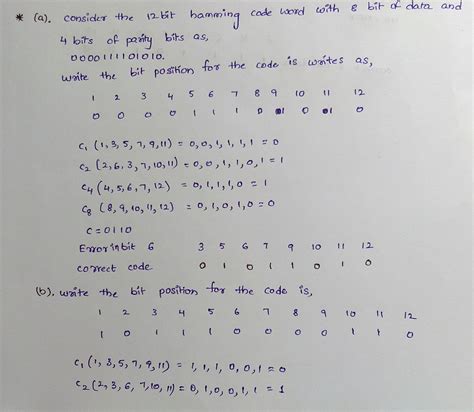 * (a). consider the 12 bit hamming code word with 8 bit of data and
4 bits of parity bits as,
000011101010.
write the bit position for the code is writes as,
1 2 3 4 5 6 7 8 9 10 11 12
0 0 0 0 1 1 1 0 1 0 1 0
C1 (1,3,5,7,9,11) = 0,0,1,1,1,1 = 0
C2 (2,6,3,7,10,11) = 0,0,1,1,0,1 = 1
C4 (4,5,6,7,12) = 0,1,1,1,0 = 1
C8 (8,9,10,11,12) = 0,1,0,1,0 = 0
C = 0110
Error in bit 6 3 5 6 7 9 10 11 12
correct code. 0 1 0 1 1 0 1 0
(b). write the bit position for the code is,
1 2 3 4 5 6 7 8 9 10 11 12
1 0 1 1 1 0 0 0 0 1 1 0
C1 (1,3,5,7,9,11) = 1,1,1,0,0,1 = 0
C2 (2,3,6,7,10,11) = 0,1,0,0,1,1 = 1